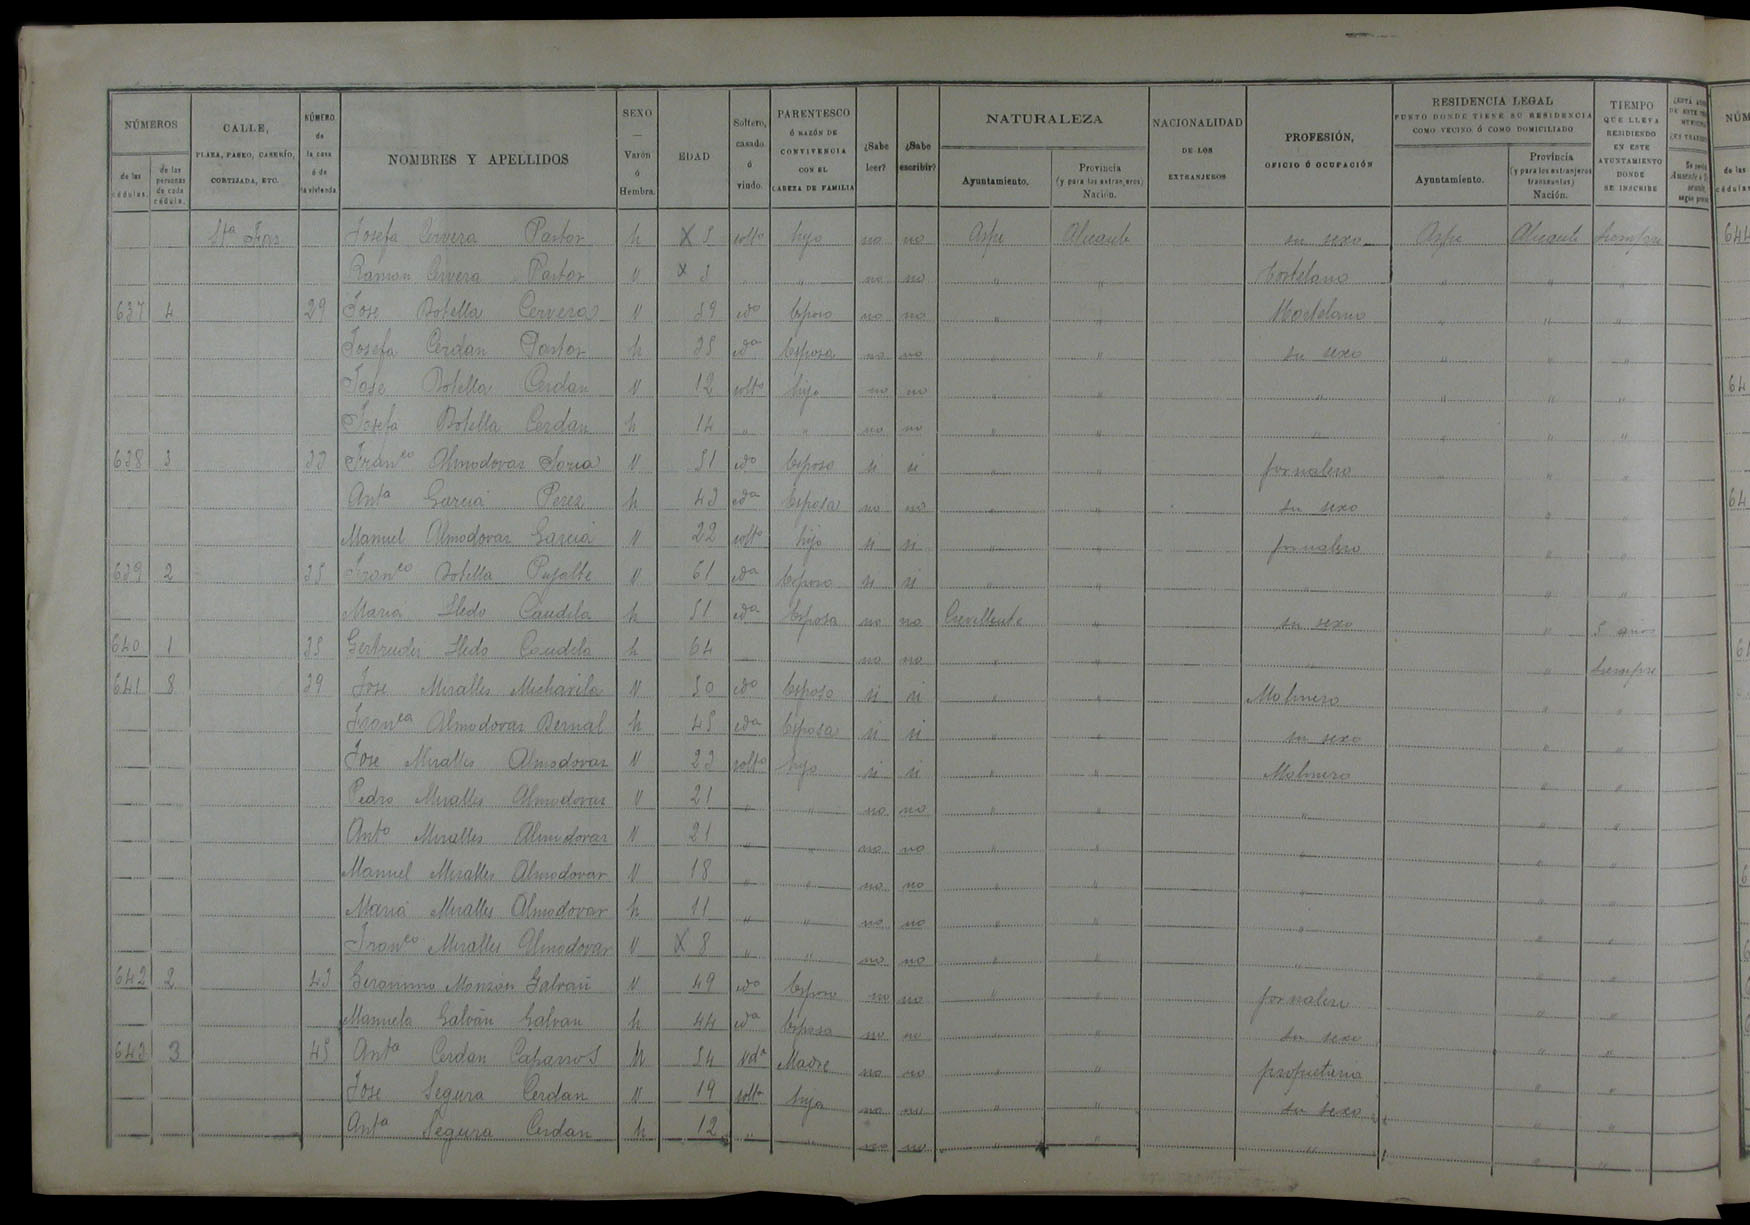 NÚMEROS
de las cédulas.
de las personas de cada cédula.
CALLE,
PLAZA, PASEO, CASERÍO,
CORTIJADA, ETC.
NÚMERO de la casa ó de la vivienda
NOMBRES Y APELLIDOS
SEXO — Varón ó Hembra.
EDAD
Soltero, casado ó viudo.
PARENTESCO
Ó RAZÓN DE
CONVIVENCIA
CON EL
CABEZA DE FAMILIA
¿Sabe leer?
¿Sabe escribir?
NATURALEZA
Ayuntamiento.
Provincia (y para los extranjeros) Nación.
NACIONALIDAD
DE LOS
EXTRANJEROS
PROFESIÓN,
OFICIO Ó OCUPACIÓN
RESIDENCIA LEGAL
PUNTO DONDE TIENE SU RESIDENCIA
COMO VECINO Ó COMO DOMICILIADO
Ayuntamiento.
Provincia (y para los extranjeros transeuntes) Nación.
TIEMPO
QUE LLEVA
RESIDIENDO
EN ESTE
AYUNTAMIENTO
DONDE
SE INSCRIBE
Sta Faz Josefa Cervera Pastor h X 5 solto hijo no no Aspe Alicante su sexo Aspe Alicante siempre
Ramon Cervera Pastor V X 3 " no no " " Hortelano " " "
637 4 29 Jose Botella Cervera V 39 cdo Esposo no no " " Hortelano " " "
Josefa Cerdan Pastor h 35 cda Esposa no no " " su sexo " " "
Jose Botella Cerdan V 12 solto hijo no no " " " " " "
Josefa Botella Cerdan h 14 " " no no " " " " " "
638 3 33 Franco Almodovar Soria V 51 cdo Esposo si si " " jornalero " "
Anta Garcia Perez h 43 cda Esposa no no " " su sexo " "
Manuel Almodovar Garcia V 22 solto hijo si si " " jornalero " "
639 2 35 Franco Botella Pujalte V 61 cda Esposo si si " " " " "
Maria Lledo Candela h 51 cda Esposa no no Crevillente " su sexo " 5 años
640 1 35 Gertrudis Lledo Candela h 64 no no " " " " siempre
641 8 39 Jose Miralles V 50 cdo Esposo si si " " Molinero " "
Franca Almodovar Bernal h 45 cda Esposa si si " " su sexo " "
Jose Miralles Almodovar V 23 solto hijo si si " " Molinero " "
Pedro Miralles Almodovar V 21 " " no no " " " " "
Anto Miralles Almodovar V 21 " " no no " " " " "
Manuel Miralles Almodovar V 18 " " no no " " " " "
Maria Miralles Almodovar h 11 " " no no " " " " "
Franco Miralles Almodovar V X 8 " " no no " " " " "
642 2 43 Geronimo Monzon Galvañ V 49 cdo Esposo no no " " jornalero " "
Manuela Galvañ Galvan h 44 cda Esposa no no " " su sexo " "
643 3 45 Anta Cerdan h 54 Vda Madre no no " " propietaria " "
Jose Segura Cerdan V 19 solto hijo no no " " su sexo " "
Anta Segura Cerdan h 12 " " no no " " " " "